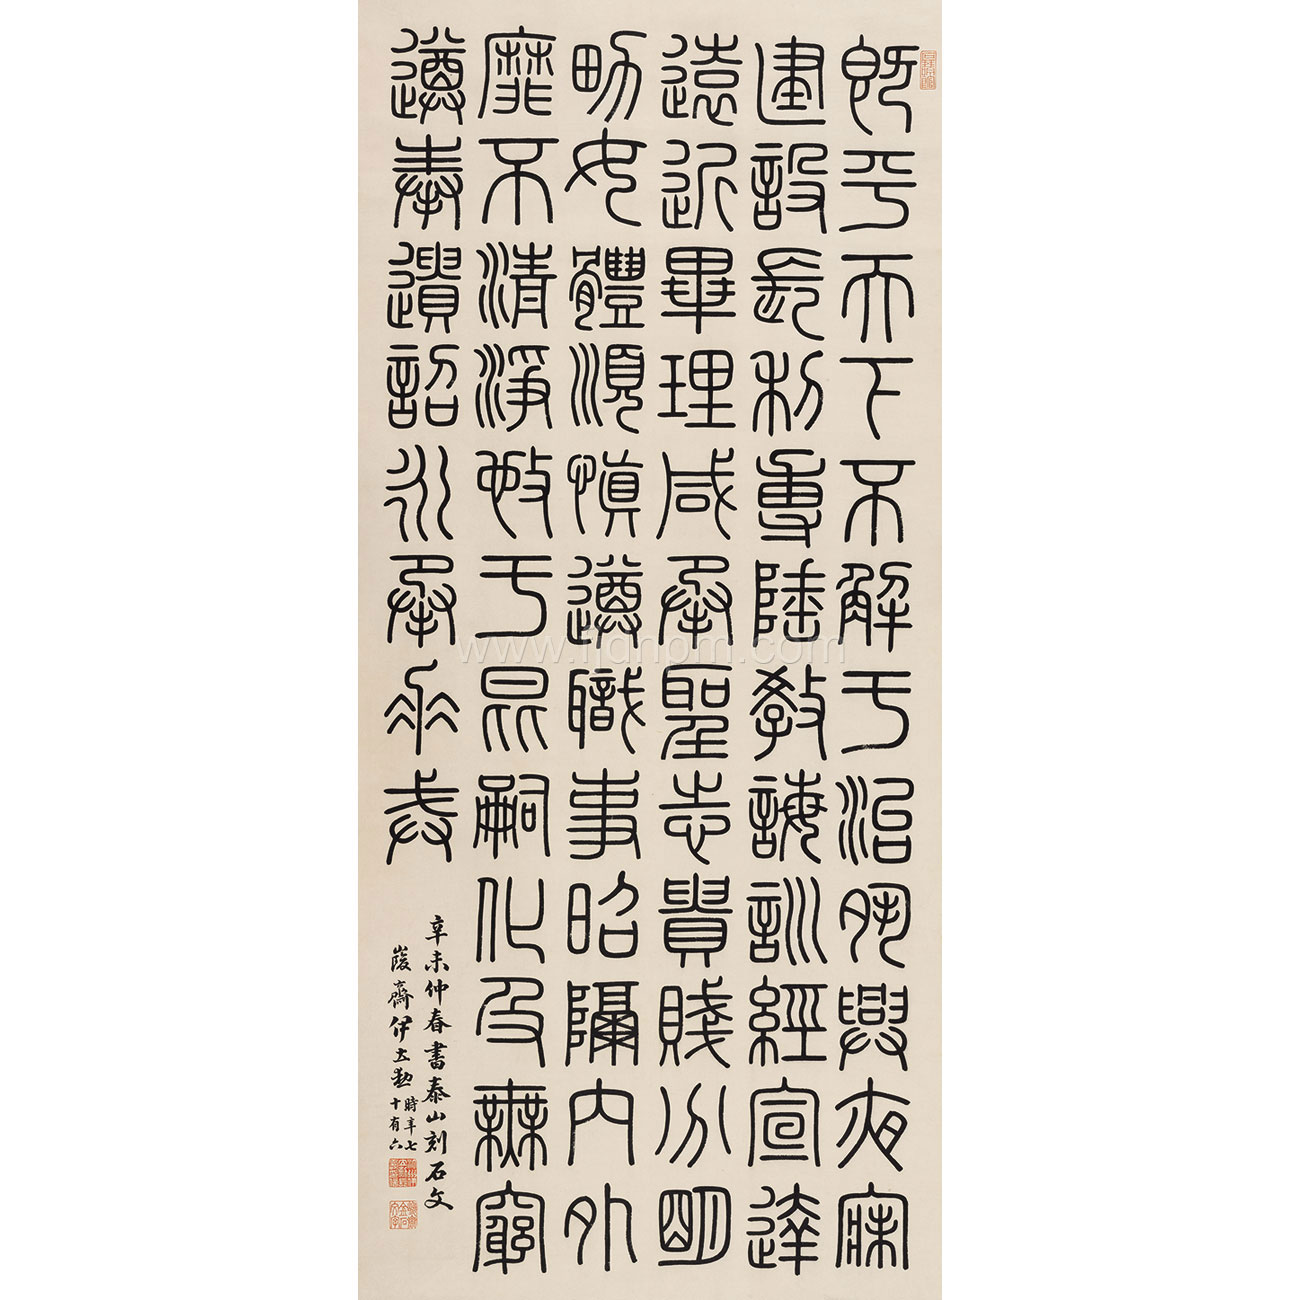 既平天下不解于治夙興夜寐
建設長利專隆教誨訓經宣達
遠近畢理咸承聖志貴賤分明
男女體順慎遵職事昭隔內外
靡不清淨施于昆嗣化及無窮
遵奉遺詔永承垂戒
辛未仲春書泰山刻石文
峻齋伊立勳時年七十有六
www.fjdnpm.com